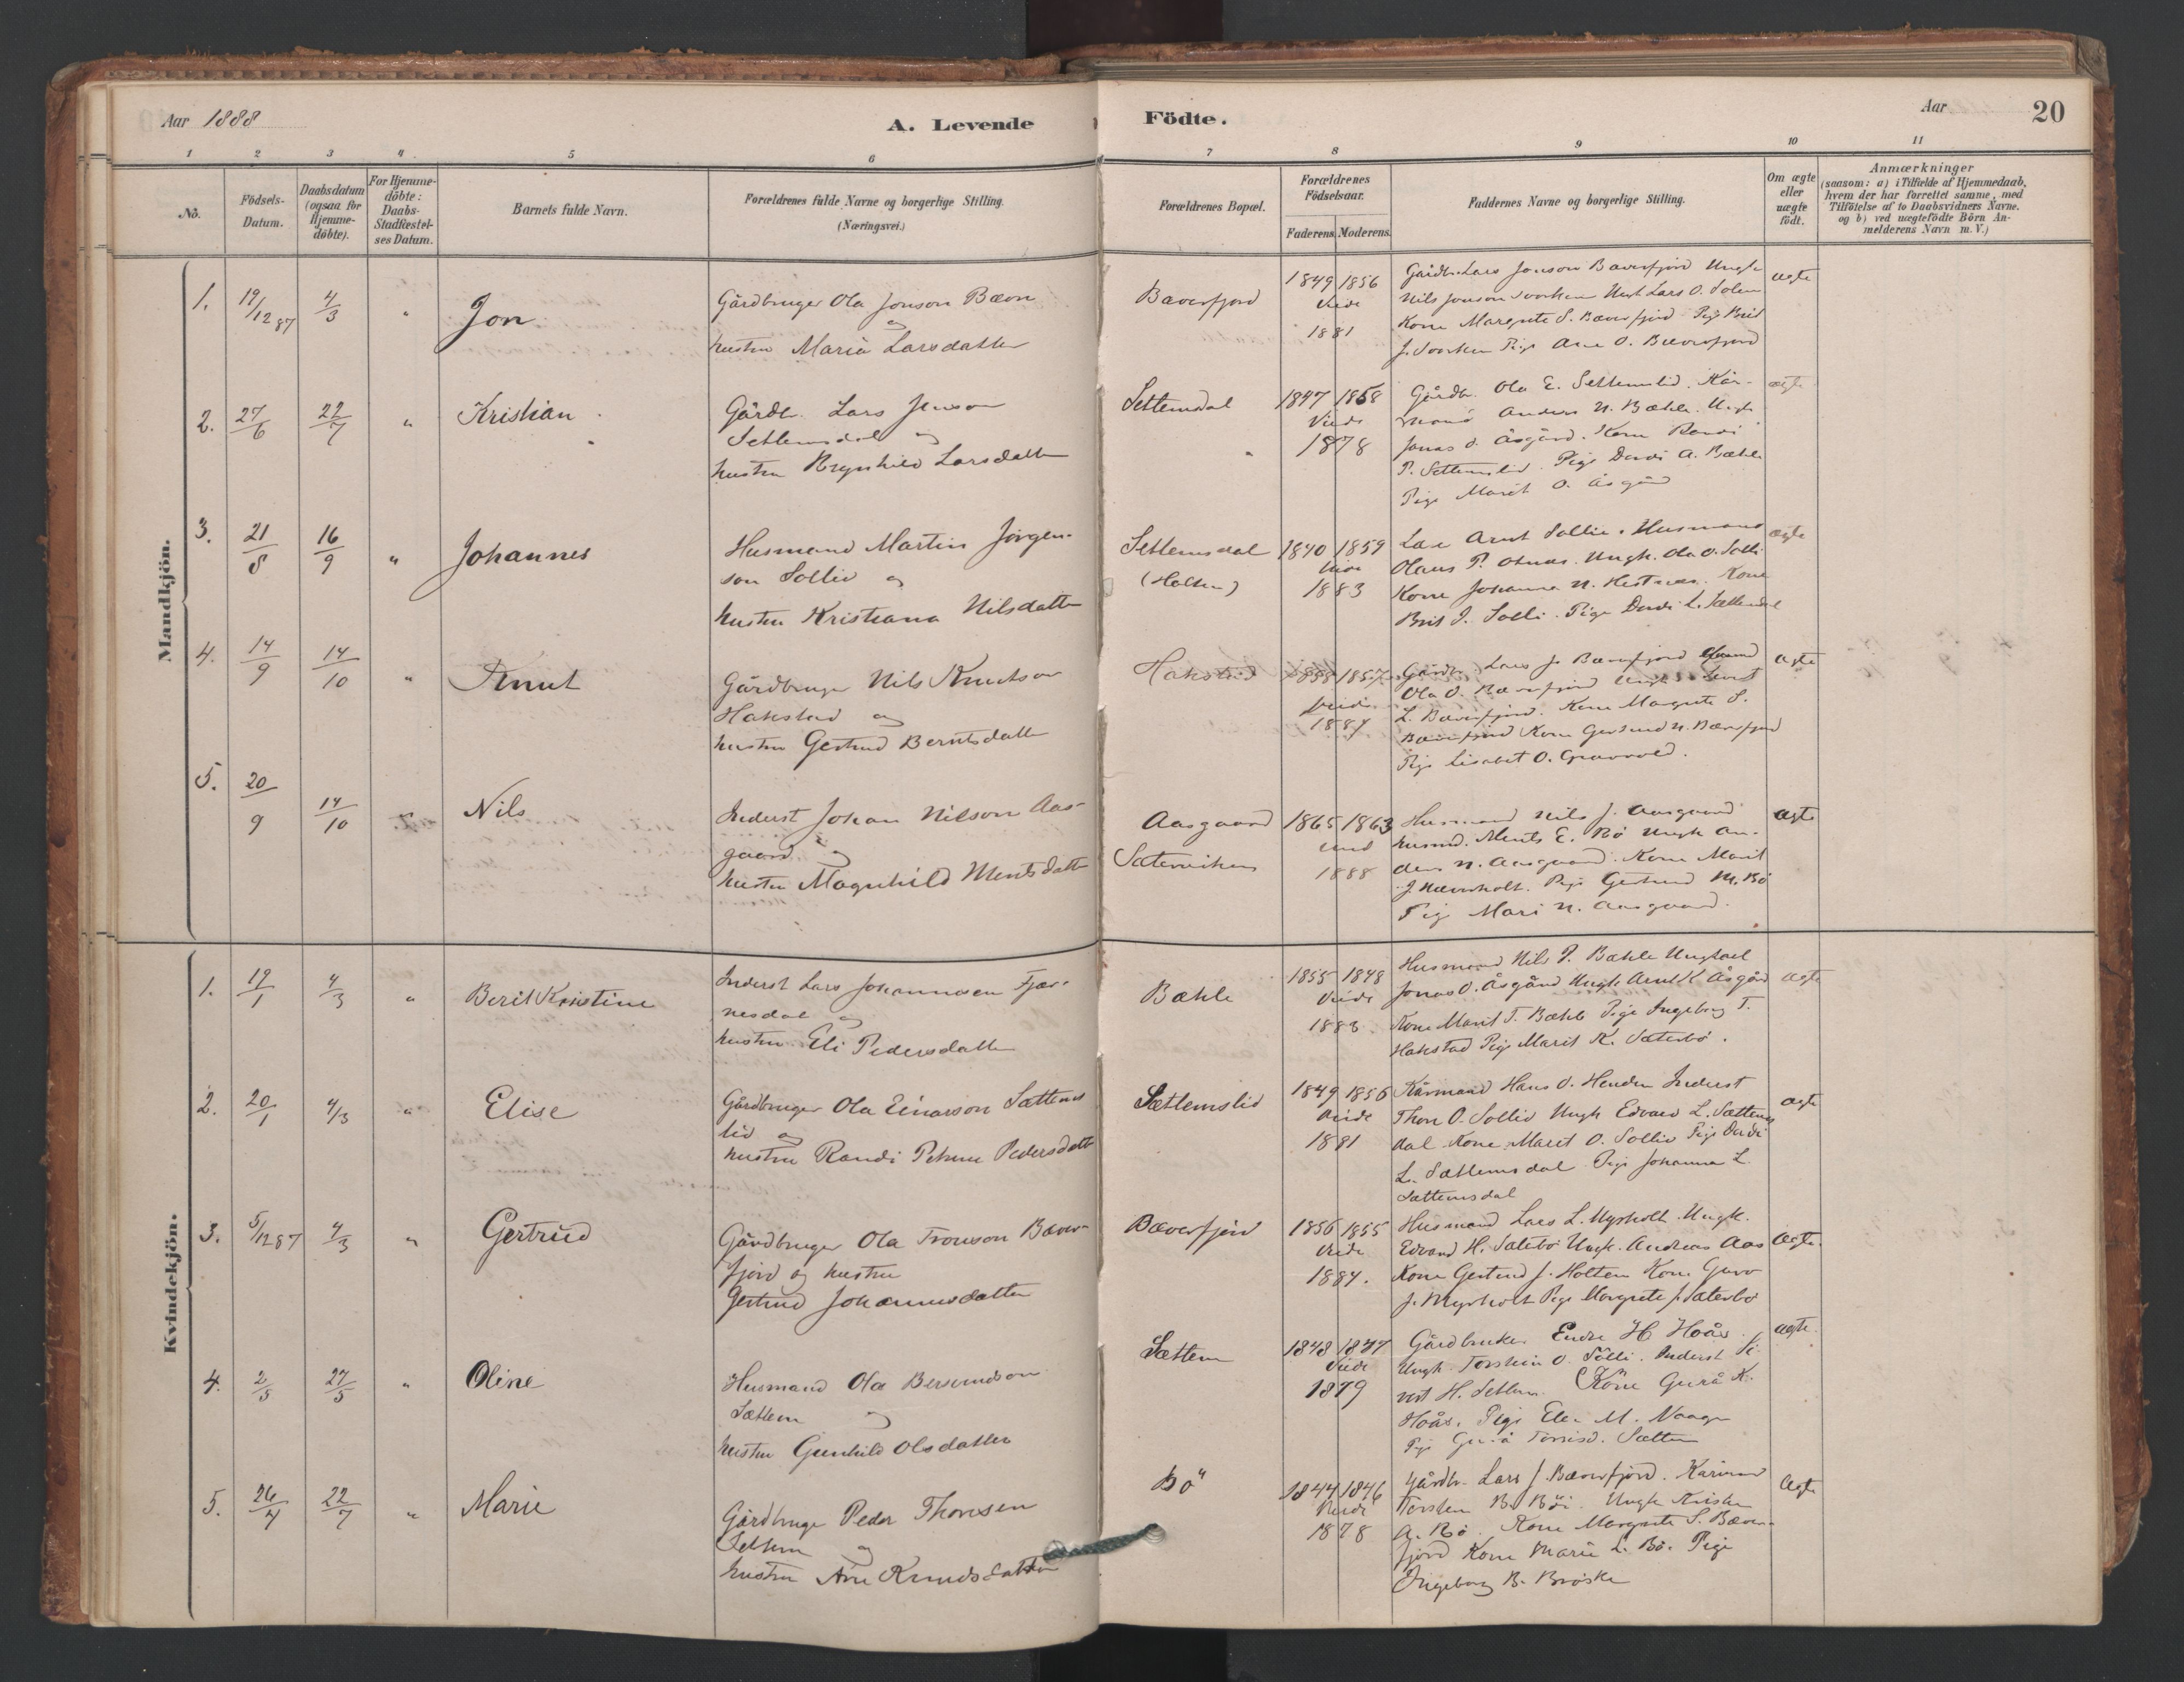 Aar 1888
A. Levende Födte.
Aar
20
1 2 3 4 5 6 7 8 9 10 11
No.
Födsels-
Datum.
Daabsdatum
(ogsaa for
Hjemme-
döbte).
For Hjemme-
döbte:
Daabs-
Stadfæstel-
ses Datum.
Barnets fulde Navn.
Forældrenes fulde Navne og borgerlige Stilling.
(Næringsvei.)
Forældrenes Bopæl.
Forældrenes
Födselsaar.
Faderens. Moderens.
Faddernes Navne og borgerlige Stilling.
Om ægte
eller
uægte
födt.
Anmærkninger
(saasom: a) i Tilfælde af Hjemmedaab,
hvem der har forrettet samme, med
Tilföielse af to Daabsvidners Navne,
og b) ved uægtefödte Börn An-
melderens Navn m.V.)
Mandkjön.
1. 19/12 87 4/3 " Jon
Gårdbruger Ola Jonson Bævn
og
hustru Maria Larsdatter
Bæverfjord
1849 1856
Viede
1881
Gårdbr. Lars Jonson Bæverfjord Ungk
Nils Jonson Ungk Lars O. Solem
Kone Margrete S. Bæverfjord Pige Brit
J. Pige Ane O. Bæverfjord
ægte
2. 27/6 22/7 " Kristian
Gårdbr. Lars Jenson
Settemsdal og
hustru Regnhild Larsdatter
Settemsdal
1847 1858
Viede
1878
Gårdbr. Ola E. Settemslid. Kår-
mand Anders N. Bæhle. Ungk
Jonas O. Åsgård. Kone Randi
P. Settemslid. Pige Dordi A. Bæhle
Pige Marit O. Åsgård
ægte
3. 21/8 16/9 " Johannes
Husmand Martin Jörgen-
son Sollid og
hustru Kristiana Nilsdatter
Settemsdal
(Holten)
1840 1859
viede
1883
Arnt Sollie. Husmand
Olaus P. Ungk. Ola O. Solli
Kone Johanna N. Hestnes. Kone
Brit J. Solli. Pige Dordi L. Sættemdal
ægte
4. 14/9 14/10 " Knut
Gårdbruger Nils Knutson
Hakstad og
hustru Gertrud Berntsdatter
Hakstad
1858 1857
Viede
1887
Gårdbr. Lars J. Bæverfjord
Ola O. Bæverfjord Ungk
L. Bæverfjord. Kone Margrete S.
Bæverfjord Kone Gertrud N. Bæverfjord
Pige Lisabet O. Granvold.
ægte
5. 20/9 14/10 " Nils
Inderst Johan Nilson Aas-
gaard og
hustru Magnhild Mentsdatter
Aasgaard
Sætervikens
1865 1863
viede
1888
Husmand Nils J. Aasgaard
husmd. Ments E. Bö Ungk An-
ders N. Aasgaard. Kone Marit
J. Nævreholt. Pige Gertrud M. Bö
Pige Mari N. Aasgaard.
ægte
Kvindekjön.
1. 19/1 4/3 " Berit Kristine
Inderst Lars Johannesen Fjær-
nesdal og
hustru Eli Pedersdatter
Bæhle
1855 1848
Viede
1883
Husmand Nils P. Bæhle Ungkarl
Jonas O. Åsgård Ungk Arnt K. Åsgård
Kone Marit T. Bæhle Pige Ingeborg T.
Hakstad Pige Marit K. Sæterbö.
ægte
2. 20/1 4/3 " Elise
Gårdbruger Ola Einarson Sættems
lid og
hustru Randi Petrine Pedersdatt
Sættemslid
1849 1856
Viede
1881
Kårmand Hans O. Henden Inderst
Thore O. Sollid Ungk Edvard L. Sættems
dal Kone Marit O. Sollid Pige Dordi
L. Sættemsdal Pige Johanna L.
Sættemsdal
ægte
3. 5/12 87 4/3 " Gertrud
Gårdbruger Ola Tronson Bæver-
fjord og hustru
Gertrud Johannesdatter
Bæverfjord
1856 1855
Viede
1884.
Husmand Lars L. Myrholt Ungk.
Edvard H. Sætebö Ungk. Andreas Aas
Kone Gertrud J. Holten Kone Guro
J. Myrholt Pige Margrete J. Sæterbö
ægte.
4. 2/5 27/5 " Oline
Husmand Ola Bersvendson
Sættem og
hustru Gunhild Olsdatter
Sættem
1848 1847
Viede
1879
Gårdbruker Endre H Hoås.
Ungk. Torstein O. Sölli. Inderst Si-
vert H. Settem. Kone Gurå K.
Hoås. Pige Eli M. Vaagn
Pige Gurå Torrisd. Sættem
ægte.
5. 26/4 22/7 " Marie
Gårdbruger Peder Thoresen
Settem og
hustru Ane Knudsdatter
Bö
1844 1846
Viede
1878
Gårdbr. Lars J. Bæverfjörd. Kårmand
Torsten B. Böi. Ungk Kristen
A. Bö. Kone Margrete S. Bæver-
fjörd Kone Marie L. Bö. Pige
Ingeborg B. Bröske
ægte